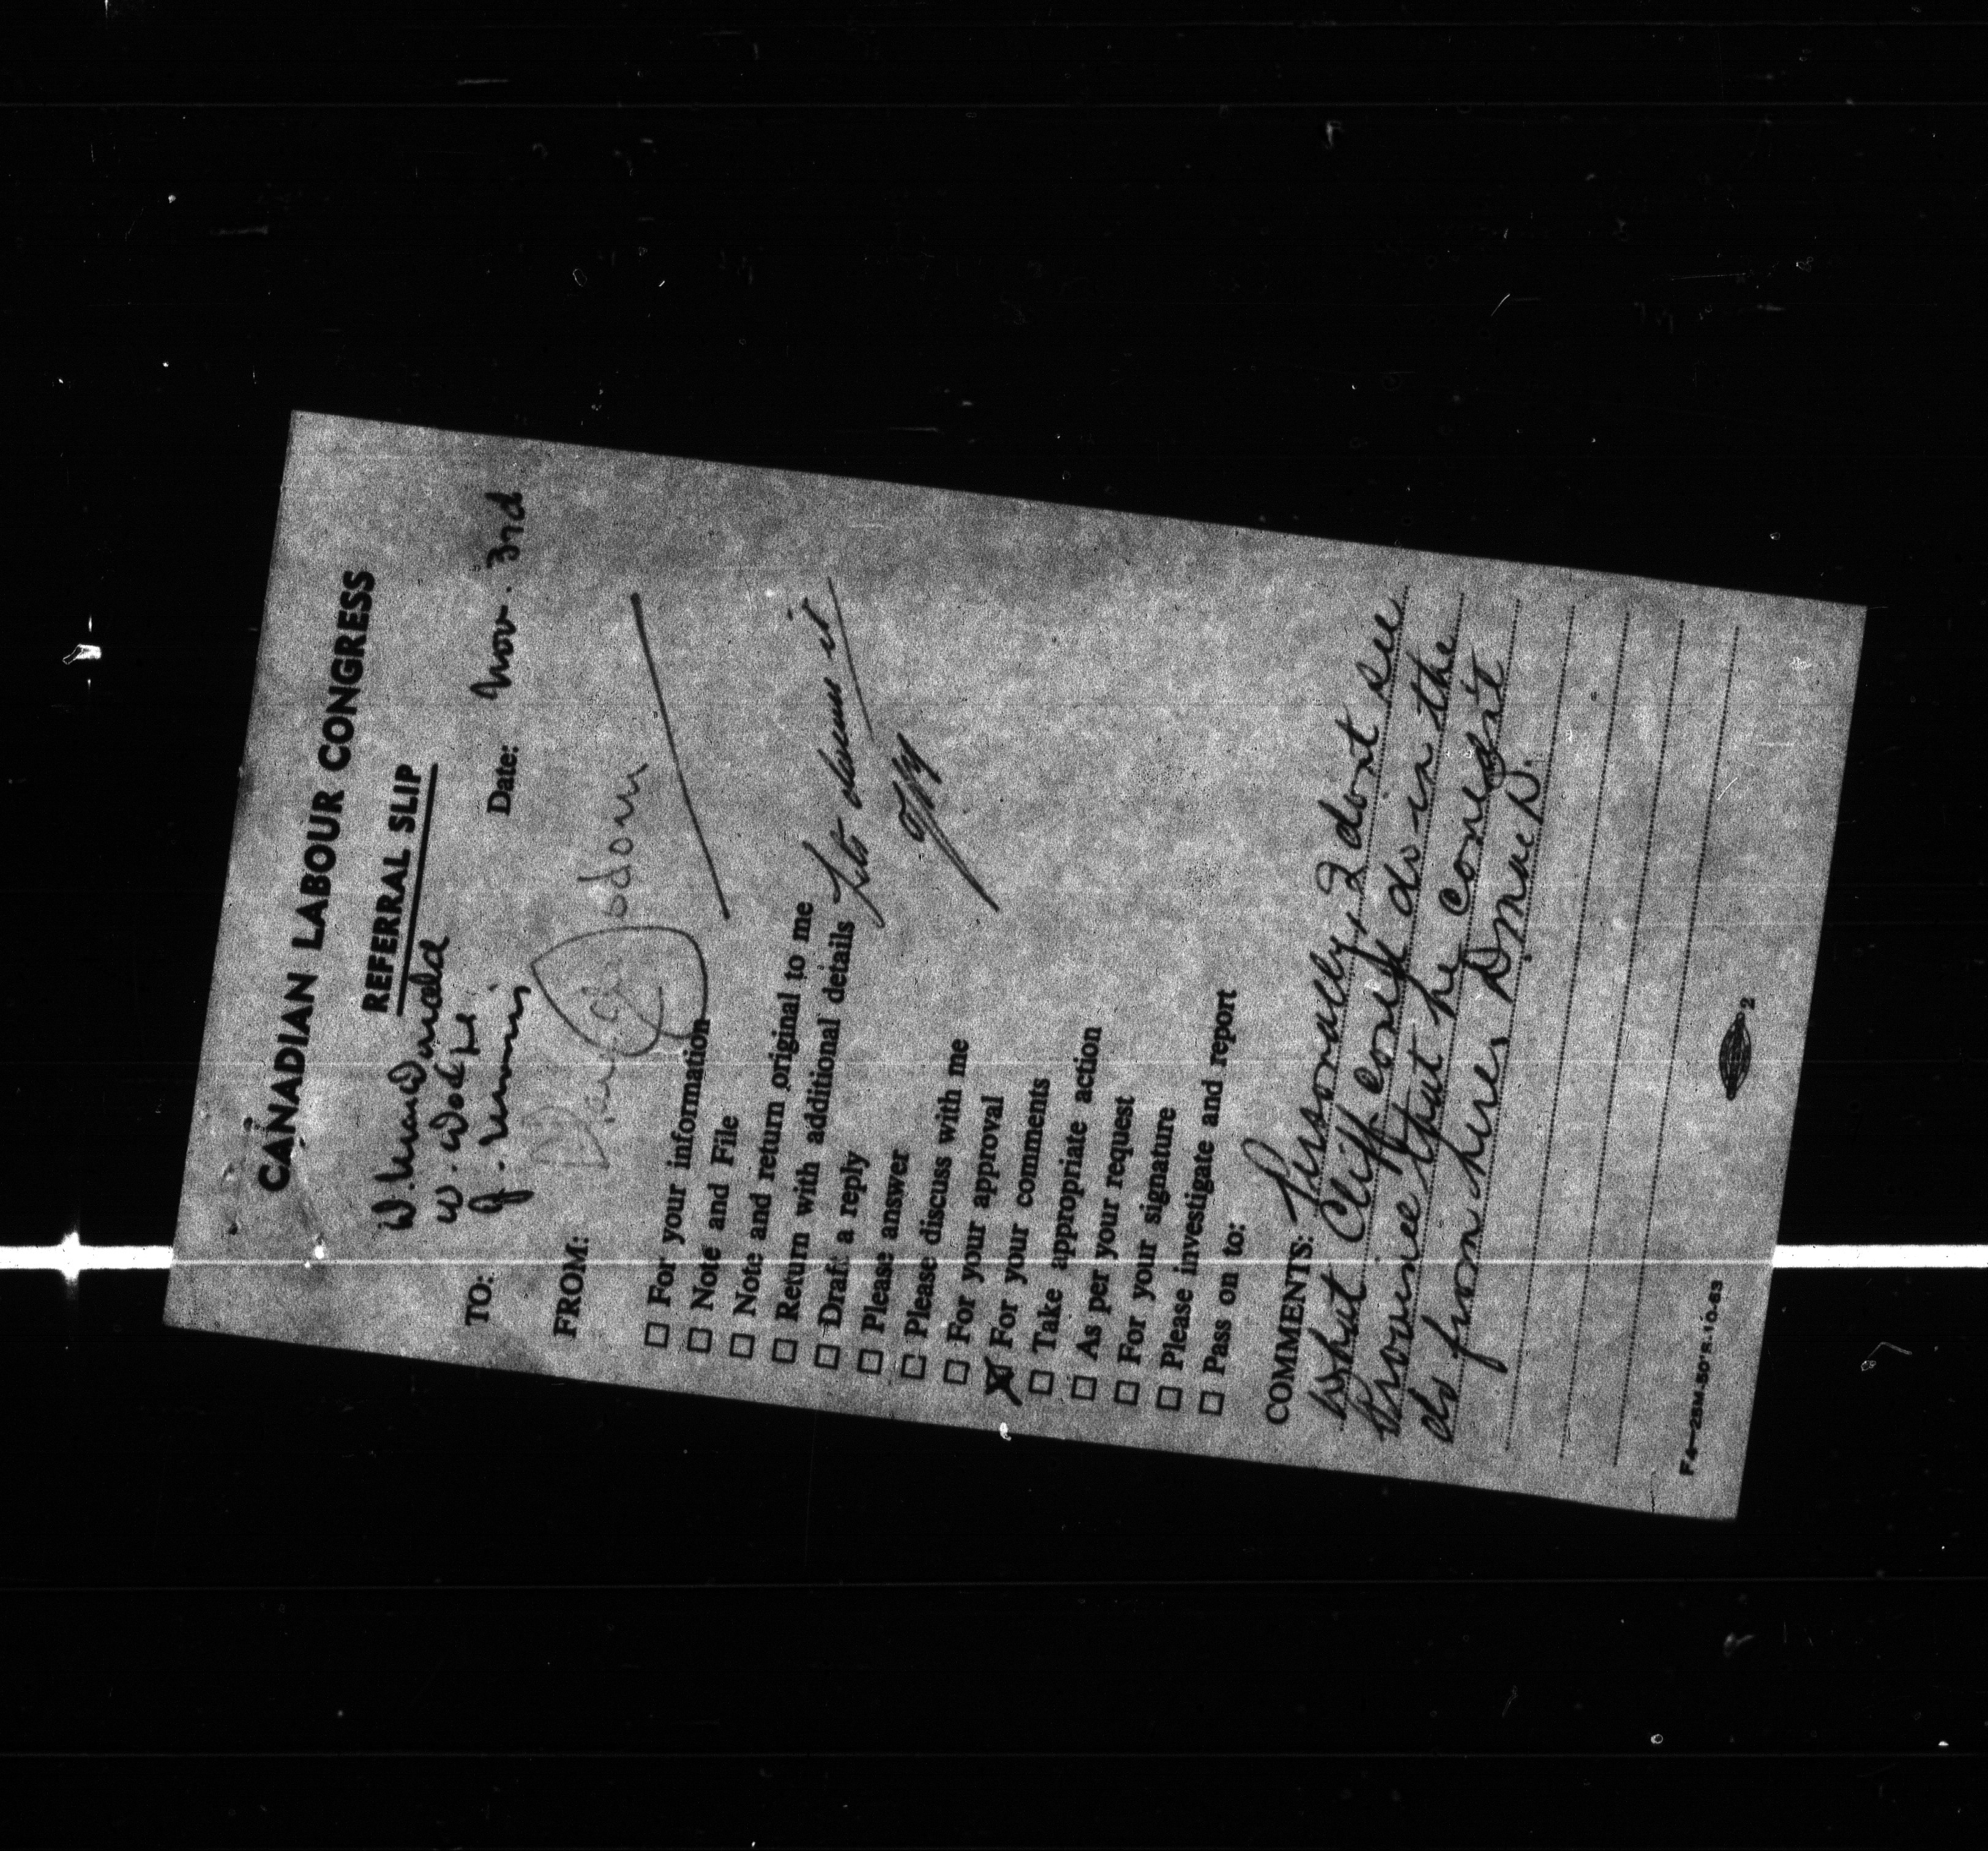 CANADIAN LABOUR CONGRESS
REFERRAL SLIP
W. MacDonald
W. Dodge
J. Morris
TO:
Date: Nov. 3rd
FROM:
☐ For your information
☐ Note and File
☐ Note and return original to me
☐ Return with additional details
☐ Draft a reply
☐ Please answer
☐ Please discuss with me
☐ For your approval
☒ For your comments
☐ Take appropriate action
☐ As per your request
☐ For your signature
☐ Please investigate and report
☐ Pass on to:
Lets discuss it
COMMENTS: Personally, I dont see
what Cliff could do in the
Province that he couldn't
do from here, D MacD.
F4-25M-50's R-10-63
2